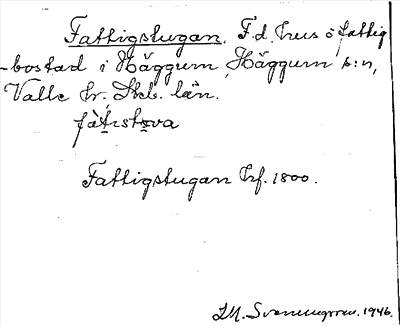 Fattigstugan. F.d. hus o fattig
-bostad i Häggum, Häggum s:n,
Valle hr, Skb. län.
fàtistᴓva
Fattigstugan Krf. 1800.
I.M. Svenungsson. 1946.